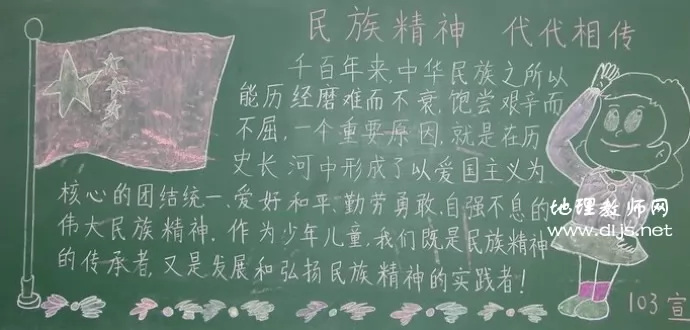 民族精神 代代相传
千百年来,中华民族之所以
能历经磨难而不衰,饱尝艰辛而
不屈,一个重要原因,就是在历
史长河中形成了以爱国主义为
核心的团结统一、爱好和平、勤劳勇敢、自强不息的
伟大民族精神。作为少年儿童,我们既是民族精神
的传承者,又是发展和弘扬民族精神的实践者!
地理教师网
www.dljs.net
103宣